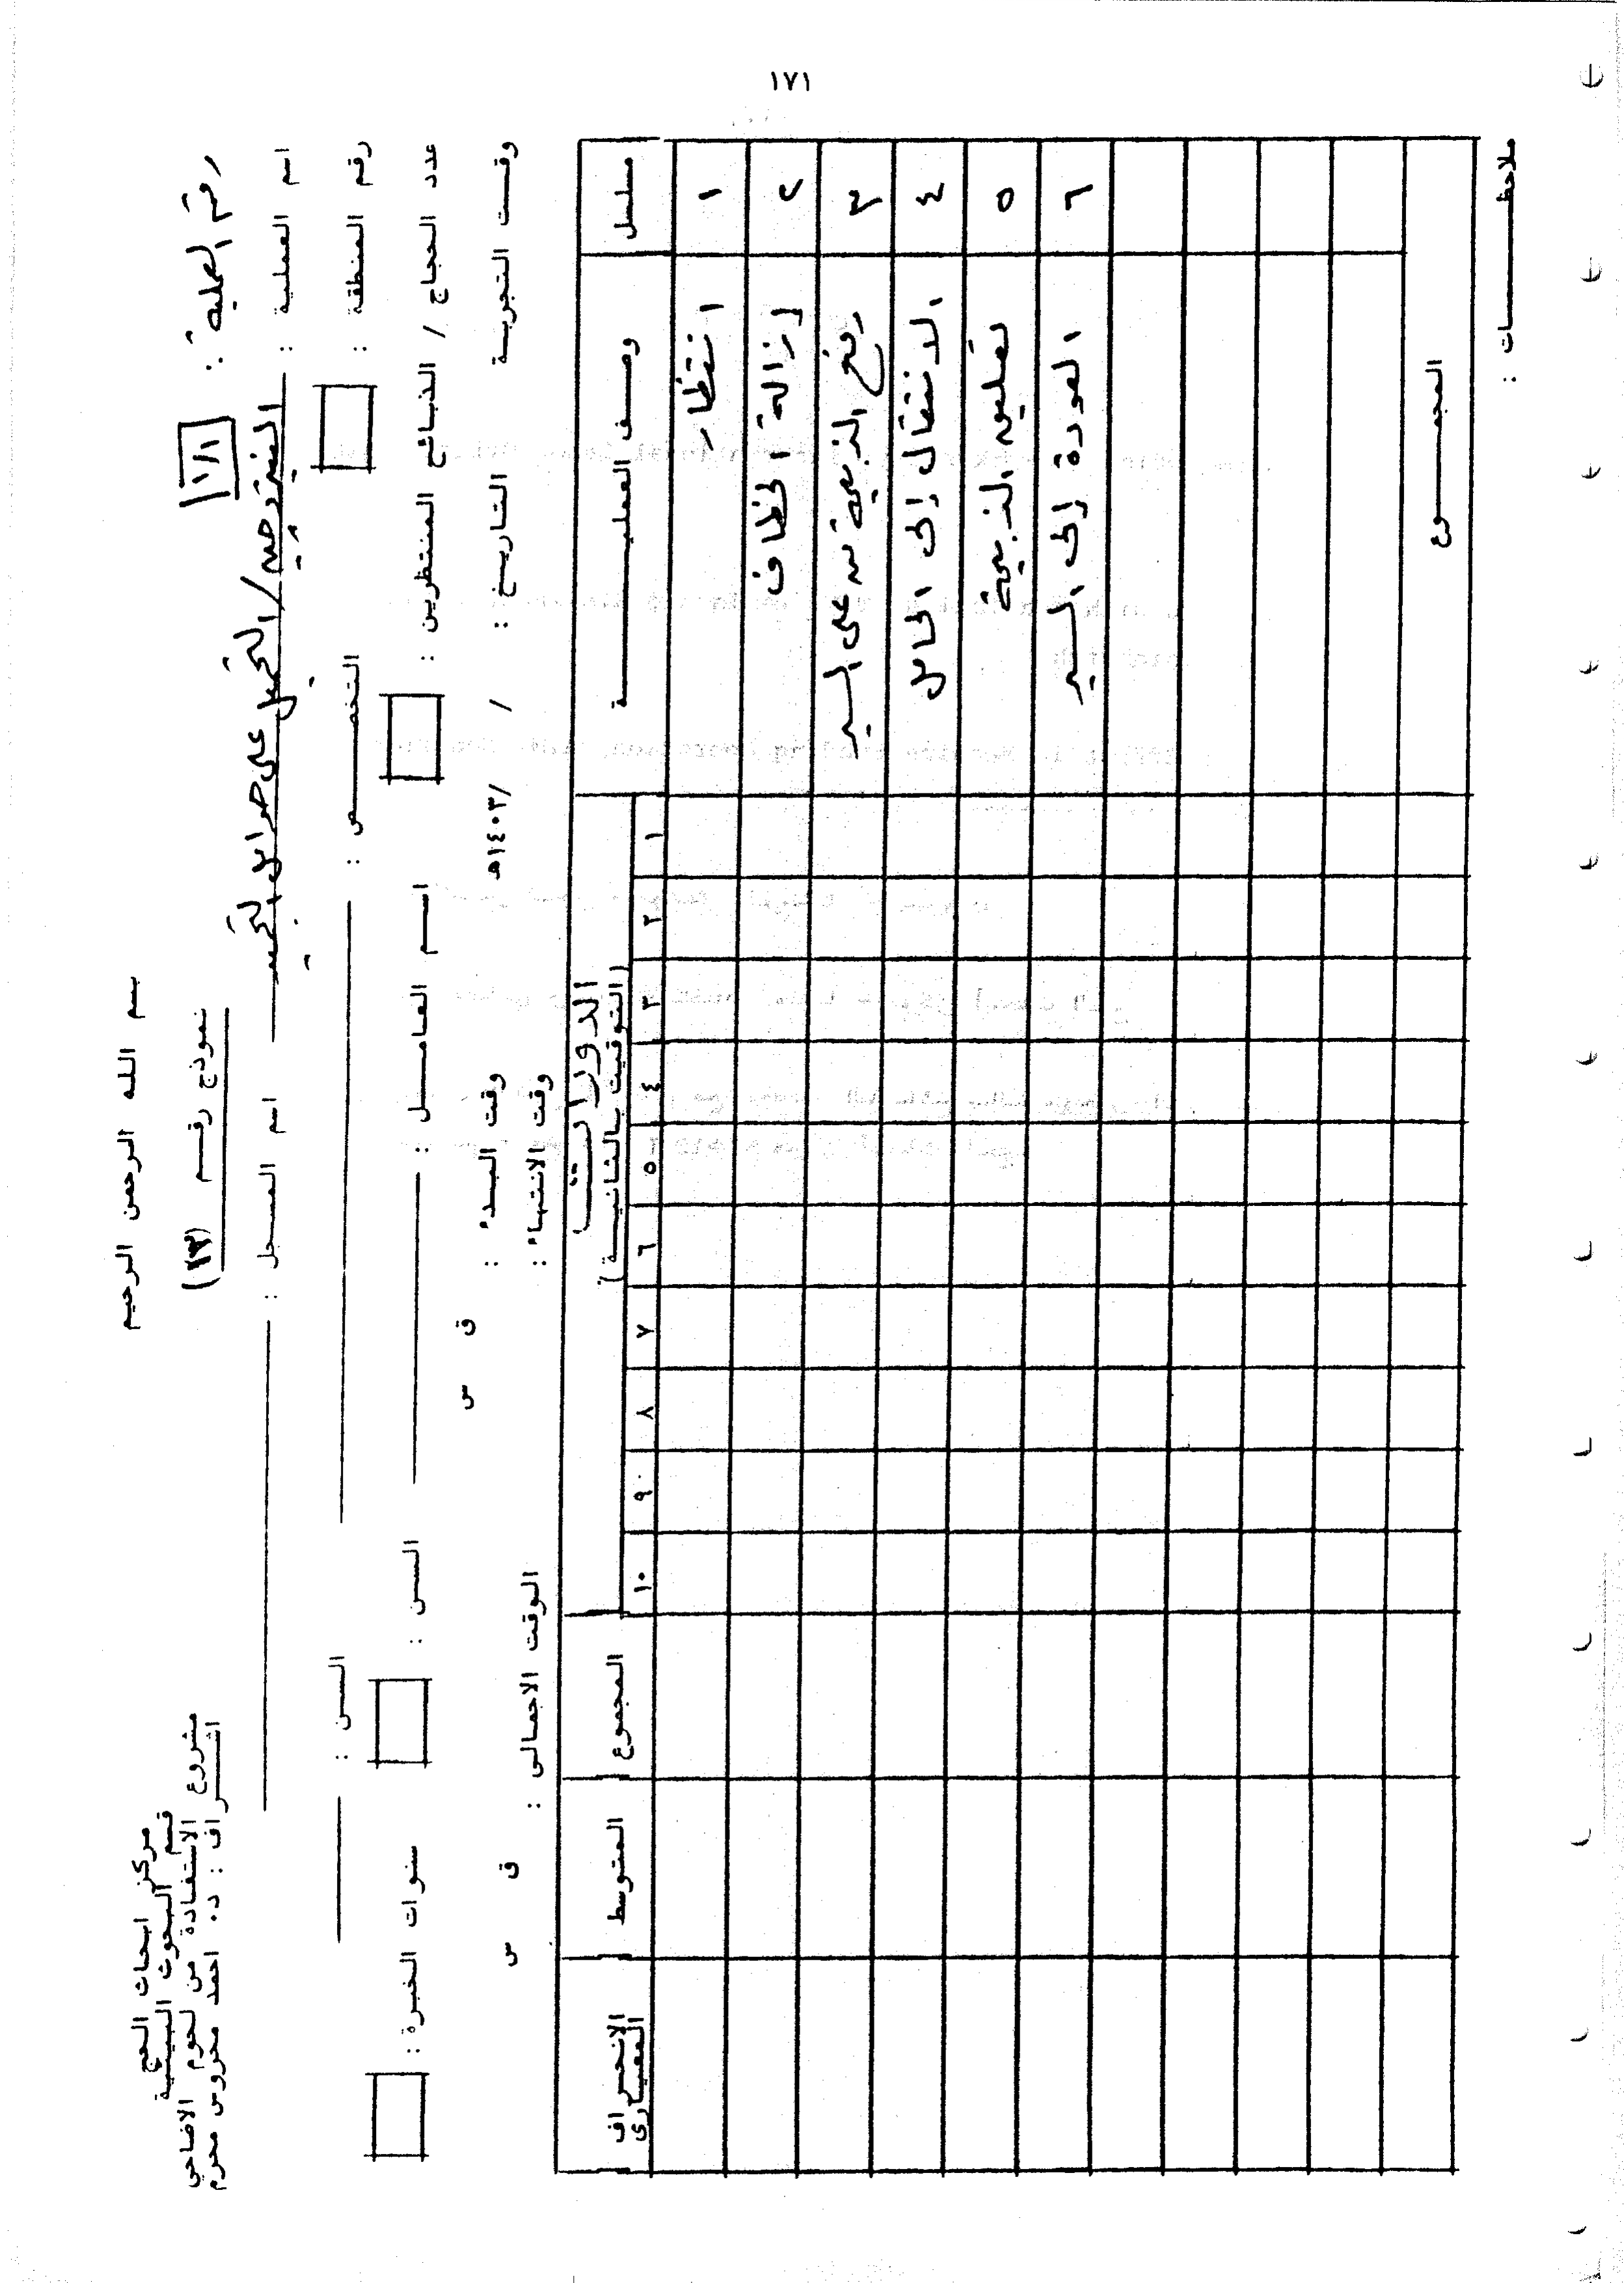 ١٧١
بسم الله الرحمن الرحيم
مركز ابحاث الحج
قسم البحوث البيئية
مشروع الاستفادة من لحوم الاضاحي
اشراف : د. احمد محروس محرم
رقم العملية : ١/٨
نموذج رقم (١٣)
اسم العملية : / التحميل على حوامل
اسم المسجل :
رقم المنطقة :
التخصص :
السن :
عدد الحجاج / الذبائح المنتظرين :
اسم العامل :
السن :
سنوات الخبرة :
وقت التجربة
التاريخ : / /١٤٠٣هـ
وقت البدء :
ق س
وقت الانتهاء :
الوقت الاجمالى :
ق س
مسلسل
وصف العمليـة
الدورات
(التوقيت بالثانية)
١ ٢ ٣ ٤ ٥ ٦ ٧ ٨ ٩ ١٠
المجموع
المتوسط
الانحراف المعيارى
١ انتظار
٢ إزالة الخطاف
٣ رفع الذبيحة من على السير
٤ الانتقال إلى الحامل
٥ تعليق الذبيحة
٦ العودة إلى السير
المجمـوع
ملاحظـات :